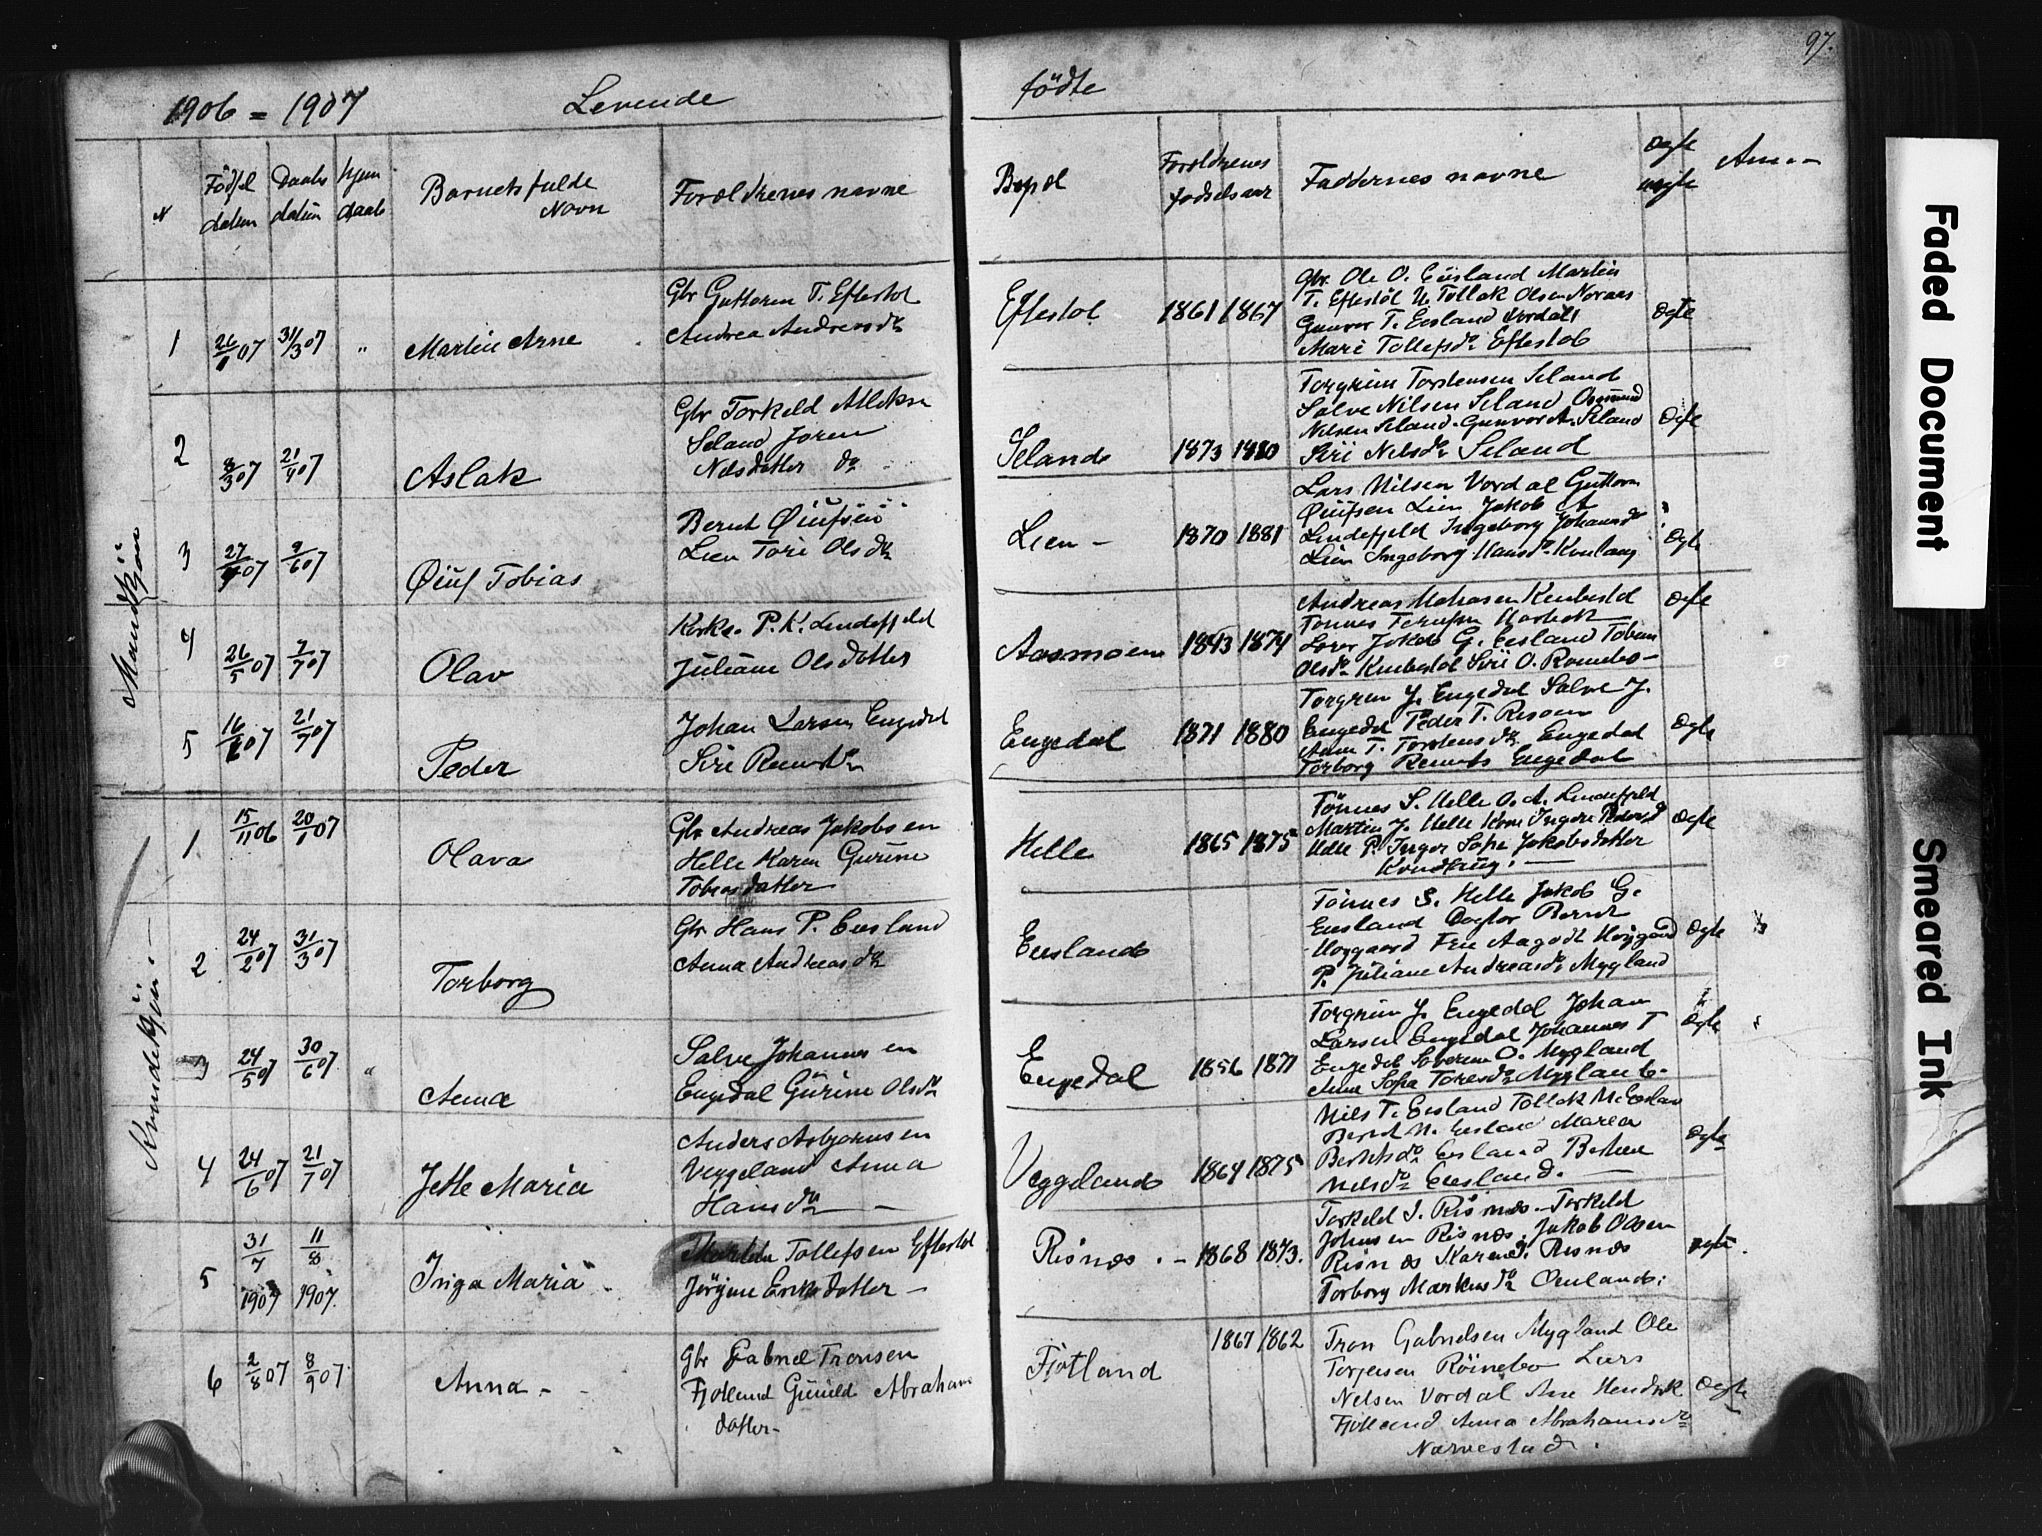 97.
1906 = 1907 Levende fødte
N Fødsel datum Daabs datum hjem daab Barnets fulde Navn Foreldrenes navne Bopæl Foreldrenes fødselsaar Faddernes navne Ægte uægte Anm.
Mandkjøn
1 26/1 07 31/3 07 " Martin Arne
Gbr Guttorm T. Eftestol
Andrea Andreasdtr
Eftestol 1861 1867
Gbr. Ole O. Eiesland Martin
T. Eftestøl N. Tollak Olsen Noraas
Gunvor T. Eesland Vordal
Mari Tollefsdr Eftestol
Ægte
2 8/3 07 21/4 07 Aslak
Gbr Torkeld Atleksn
Seland Joren
Nilsdatter do
Seland 1873 1880
Torgrim Torstensen Seland
Salve Nilsen Seland Osmund
Nilsen Seland. Gunvor A. Seland
Siri Nilsdr Seland
Ægte
3 27/4 07 9/6 07 Øiuf Tobias
Bernt Øiufsen
Lien Tori Olsdtr
Lien - 1870 1881
Lars Nilsen Vordal Guttorm
Øiufsen Lien Jakob A
Lindefjeld Ingeborg Johansdr
Lien Ingeborg Hansdr Kvnlaug
Ægte
4 26/5 07 7/7 07 Olav
Kirks. P. K. Lindefjeld
Juliane Olsdatter
Aasmoen 1843 1874
Andreas
Tønnes
Jakob G. Eesland Tobine
Olsdr Siri O.
Ægte
5 16/6 07 21/7 07 Peder
Johan Larsen Engedal
Siri
Engedal 1871 1880
Torgrim J. Engedal Salve J.
Engedal Peder T. Risnes
Anne T. Torstensdtr Engedal
Torborg Engedal
Ægte
Kvindekjøn. -
1 15/11 06 20/1 07 Olava
Gbr Andreas Jakobsen
Helle Karen Gurine
Tobiasdatter
Helle 1865 1875
Tønnes S. Helle O. A. Lindefjeld
Martin J. Helle Kone Ingeri
Helle P. Inger Sofie Jakobsdatter
Ægte
2 24/2 07 31/3 07 Torborg
Gbr Hans P. Eesland
Anna Andreasdtr
Eesland
Tønnes S. Helle Jakob G.
Eesland Dogtor Bernt
Høygaard Fru Aagodt Høygaard
P. Juliane Andreasdr Mygland
Ægte
3 24/5 07 30/6 07 " Anna
Salve Johannesen
Engedal Gurine Olsdtr
Engedal 1856 1871
Torgrim J. Engedal Johan
Larsen Engedal Johannes T
Engedal Severine O. Mygland
Anne Sofie Toresdr Mygland.
Ægte
4 24/6 07 21/7 07 Jette Maria
Anders Asbjørnsen
Veggeland Anna
Hansdtr -
Veggeland 1864 1875
Nils T. Eesland Tollak N. Eeslan
Bernt N. Eesland Maria
Berntsdr Eesland Bertine
Nilsdr Eesland. -
Ægte
5 31/7 1907 11/8 1907. Inga Maria
Tollefsen Eftestol
Jørgine Eriksdatter -
Risnes . - 1868 1873.
Torkeld I. Risnes. Torkeld
Johnsen Risnes. Jakob Olsen
Risnes Karen Risnes
Torborg Markusdr Omland.
Ægte.
6 2/8 07 8/9 07. Anna -
Gbr Gabriel Tronsen
Fjotland Gunild Abraham
datter-
Fjotland 1867 1862
Tron Gabrielsen Mygland Ole
Torjersen Røinebo Lars
Nilsen Vordal Ane Hendrik
Fjotland Anna Abrahamsdr
Narvestad.
Ægte
Faded Document
Smeared Ink